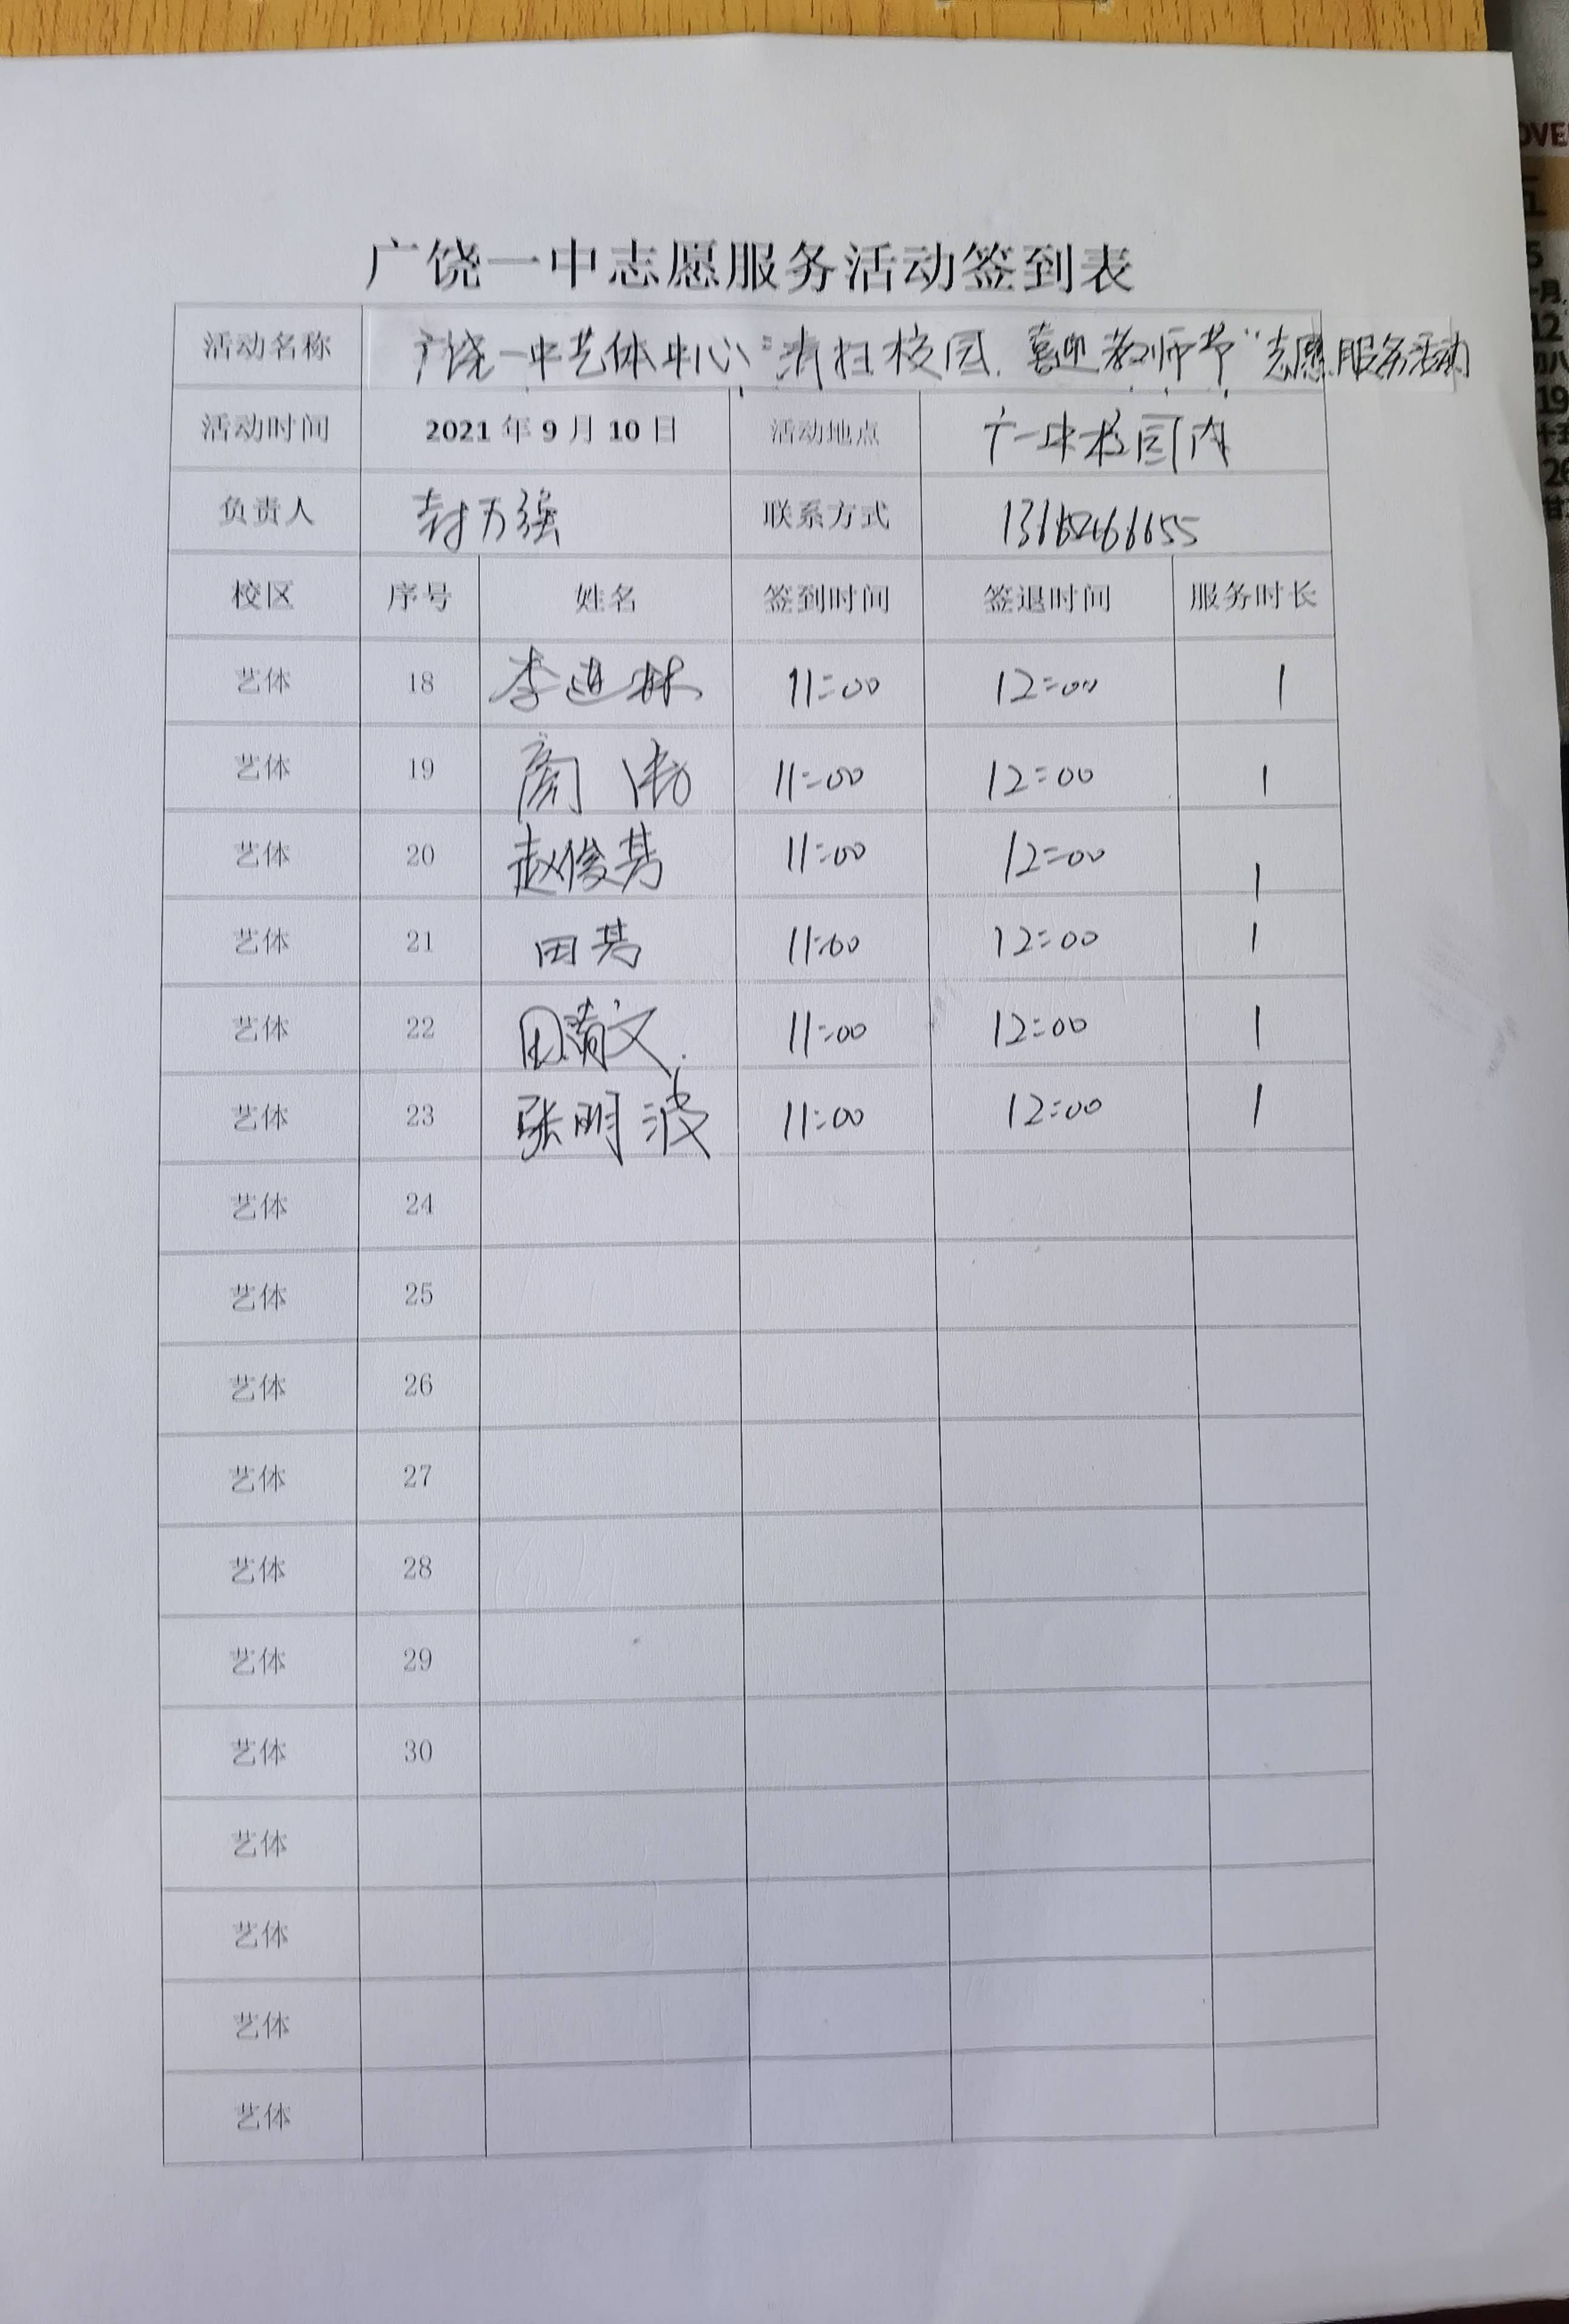 广饶一中志愿服务活动签到表
活动名称 广饶一中艺体中心“清扫校园、喜迎教师节”志愿服务活动
活动时间 2021年9月10日 活动地点 广一中校园内
负责人 封万强 联系方式
校区 序号 姓名 签到时间 签退时间 服务时长
艺体 18 李进林 11:00 12:00 1
艺体 19 11:00 12:00 1
艺体 20 赵俊芳 11:00 12:00 1
艺体 21 田芳 11:00 12:00 1
艺体 22 田清文 11:00 12:00 1
艺体 23 张明波 11:00 12:00 1
艺体 24
艺体 25
艺体 26
艺体 27
艺体 28
艺体 29
艺体 30
艺体
艺体
艺体
艺体